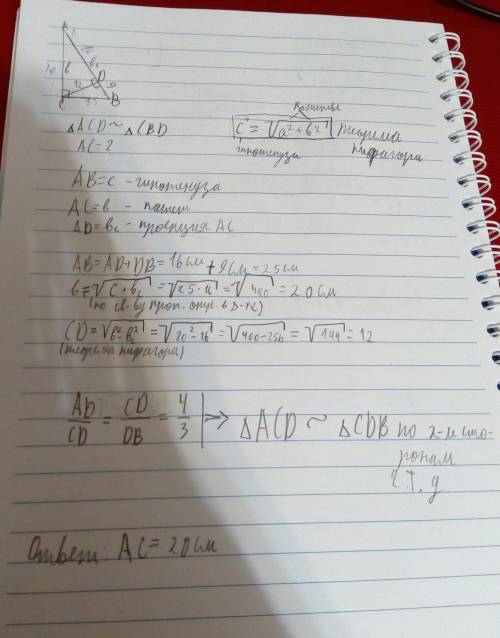 A
b
bc
12
D
9
C
15
B
△ACD ~ △CBD
AC - ?
катеты
c = √a² + b²
Теорема
гипотенуза
пифагора
AB = c - гипотенуза
AC = b - катет
AD = bc - проекция AC
AB = AD + DB = 16 см + 9 см = 25 см
b = √c · bc = √25 · 16 = √400 = 20 см
CD = √b² - bc² = √20² - 16² = √400 - 256 = √144 = 12
(теорема пифагора)
AD/CD = CD/DB = 4/3 => △ACD ~ △CDB по 2-м сто-
ронам
Ч.Т.д
Ответ: AC = 20 см